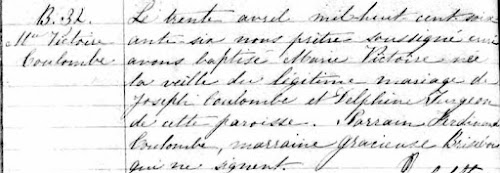 B. 32.
Mie Victoire
Coulombe
Le trente avril mil huit cent soix
ante six nous prêtre soussigné
avons baptisé Marie Victoire née
la veille du légitime mariage de
Joseph Coulombe et Delphine Turgeon
de cette paroisse. Parrain Ferdinand
Coulombe, marraine Gracieuse
qui ne signent.